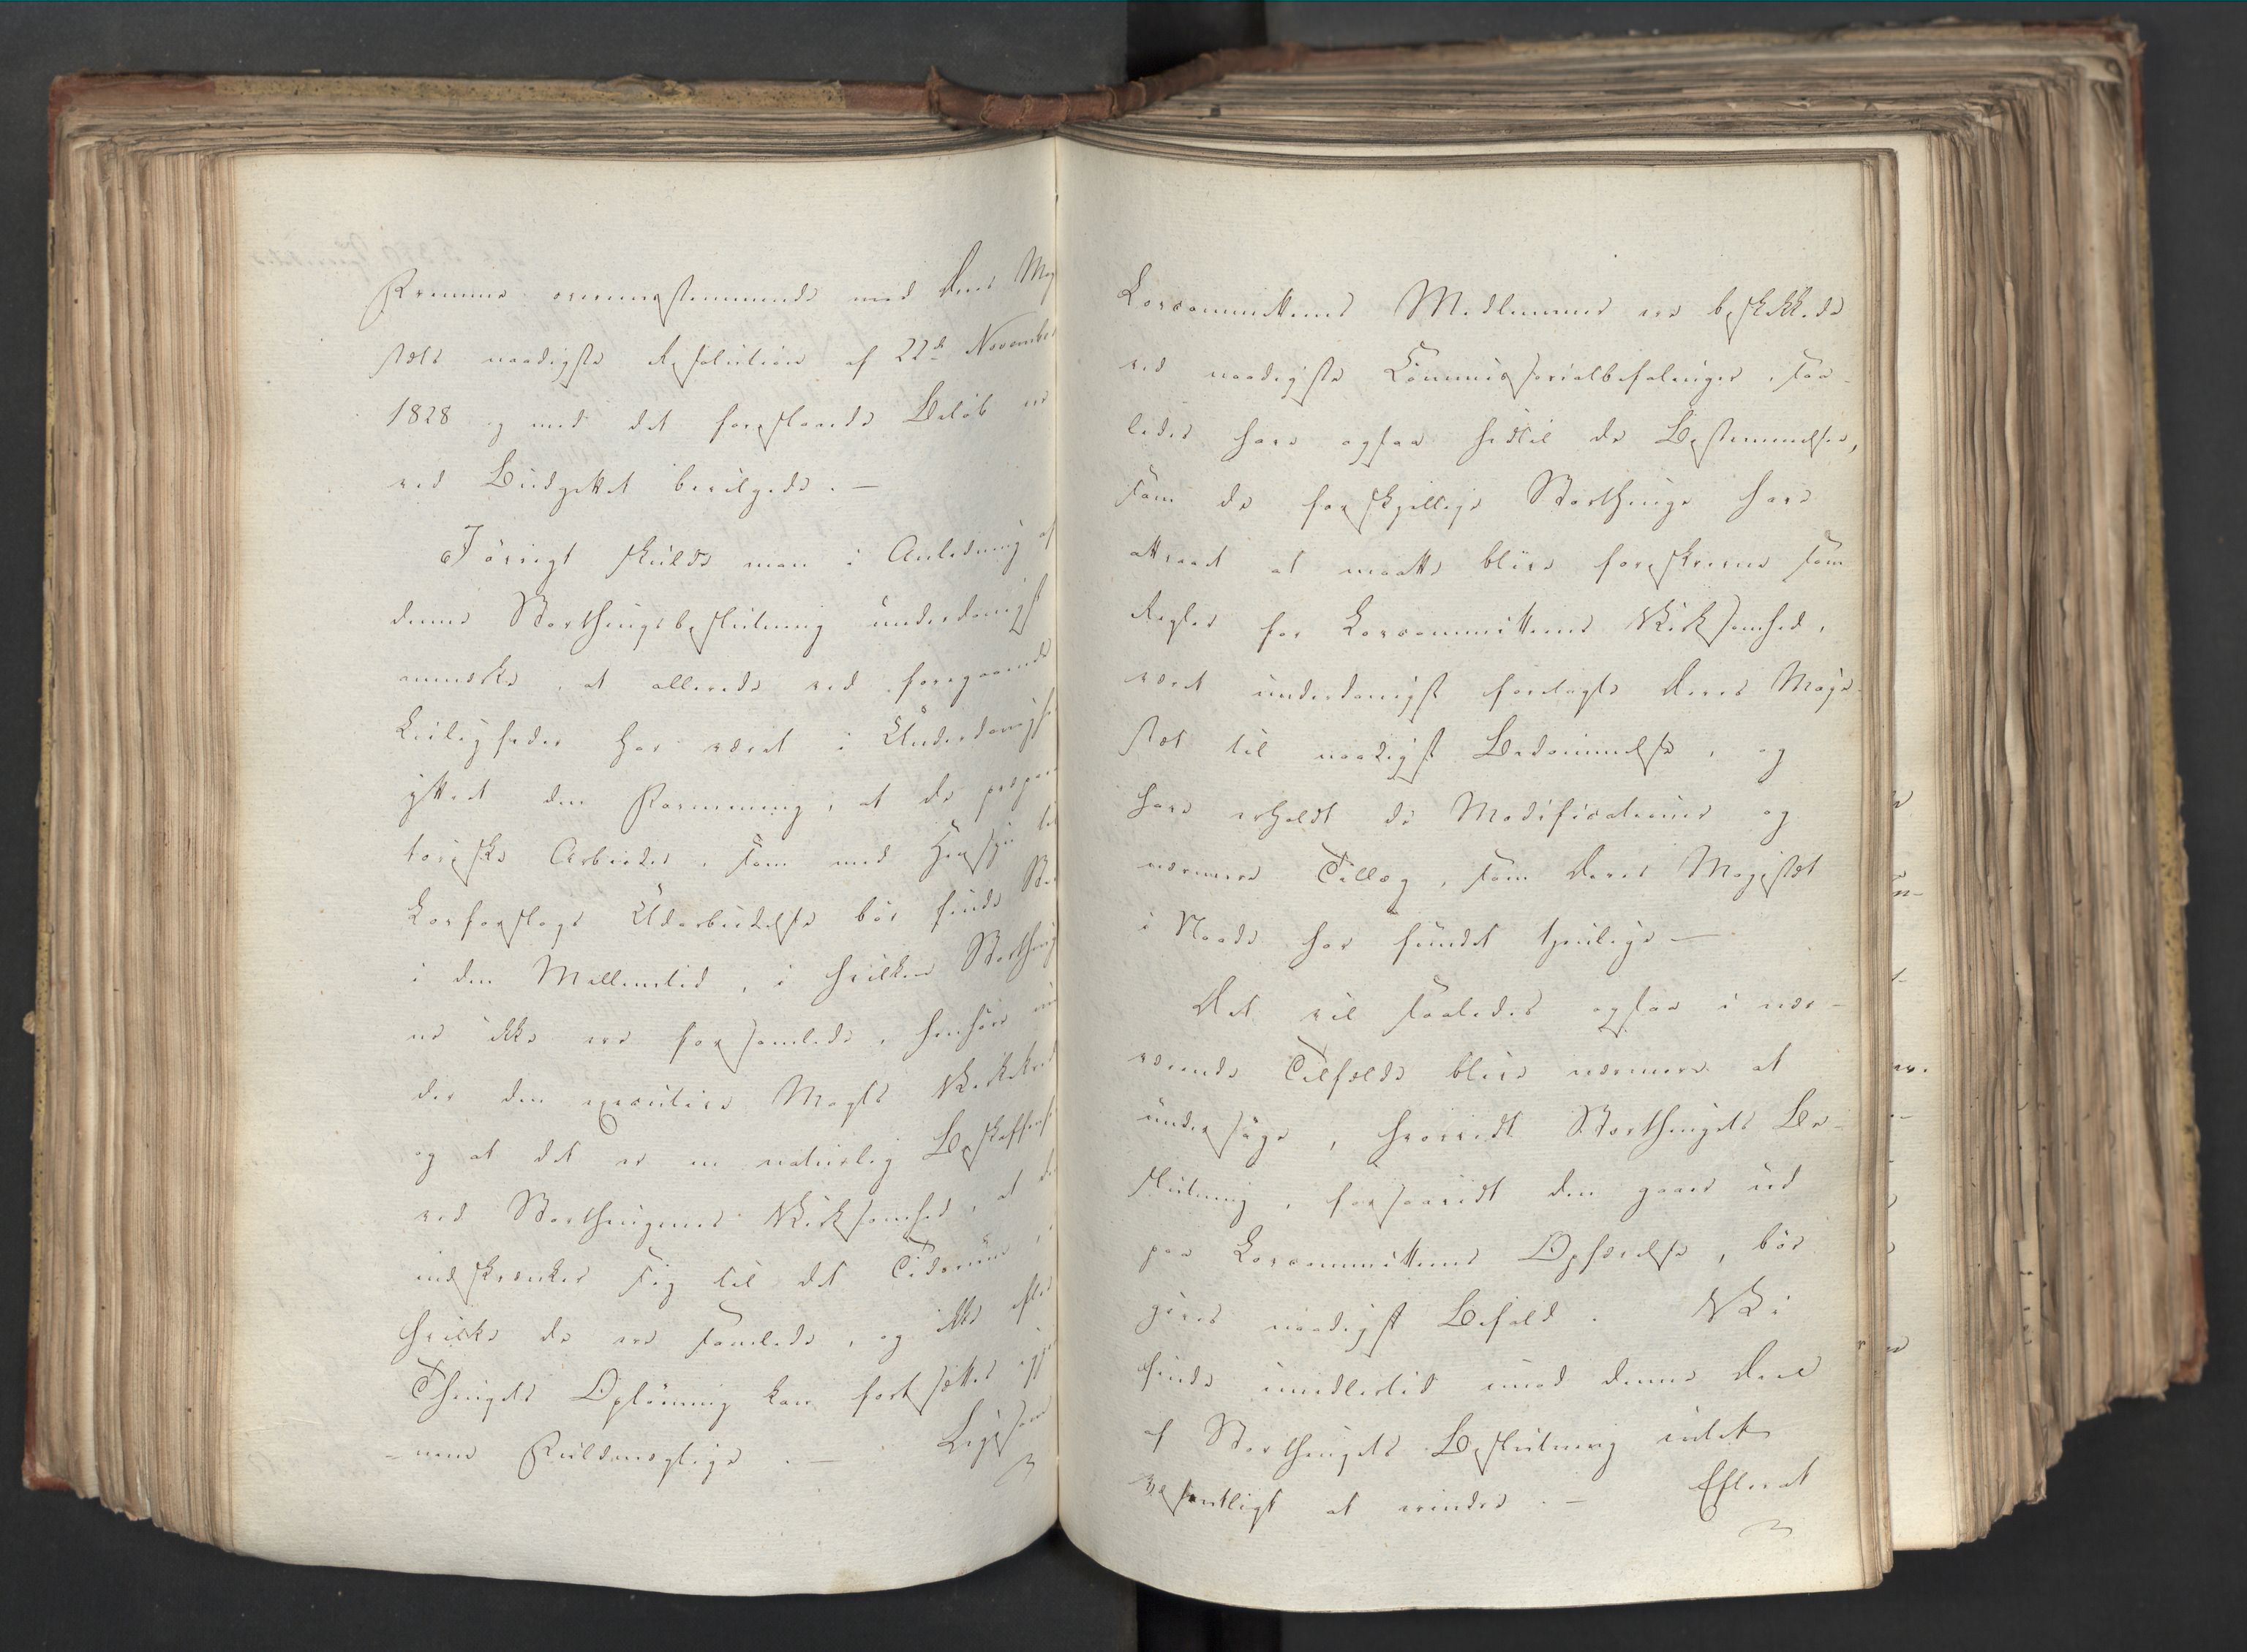 Kronene overensstemmende med Deres Maj
stæts naadigste Resolution af 22de November
1828 og med det foreslaaede Beløb er
ved Budgettet bevilgede. —
Iøvrigt skulde man i Anledning af
denne Storthingsbeslutning underdanigst
anmærke, at allerede ved foregaaende
Leiligheder har været i Underdanighe
yttret den Formening, at de præpara
toriske Arbeider, som med Hensyn til
Lovforslags Udarbeidelse bør finde Sted
i den Mellemtid, i hvilken Storthing
ne ikke ere forsamlede, henhøre un
der den executive Magts Virkekreds
og at det er en naturlig Beskaffenh
ved Storthingenes Virksomhed, at de
indskrænker sig til det Tidsrum, i
hvilke de ere samlede, og ikke efter
Thingets Opløsning kan fortsættes igje
nem Fuldmægtige. — Ligesom
Lovcommitteens Medlemmer ere beskikkede
ved naadigste Commissorialbefalinger, saa-
ledes have ogsaa hidtil de Bestemmelser,
som de forskjellige Storthinge have
attraaet at maatte blive foreskrevne som
Regler for Lovcommitteens Virksomhed,
været underdanigst forelagte Deres Maje-
stæt til naadigst Bedømmelse, og
have erholdt de Modificationer og
nærmere Tillæg, som Deres Majestæt
i Naade har fundet tjenlige —
Det vil saaledes ogsaa i nær-
værende Tilfælde blive nærmere at
undersøge, hvorvidt Storthingets Be-
slutning, forsaavidt den gaaer ud
paa Lovcommitteens Ophævelse, bør
gives naadigst Bifald. Vi
finde imidlertid imod denne Deel
af Storthingets Beslutning intet
væsentligt at erindre. — Efterat